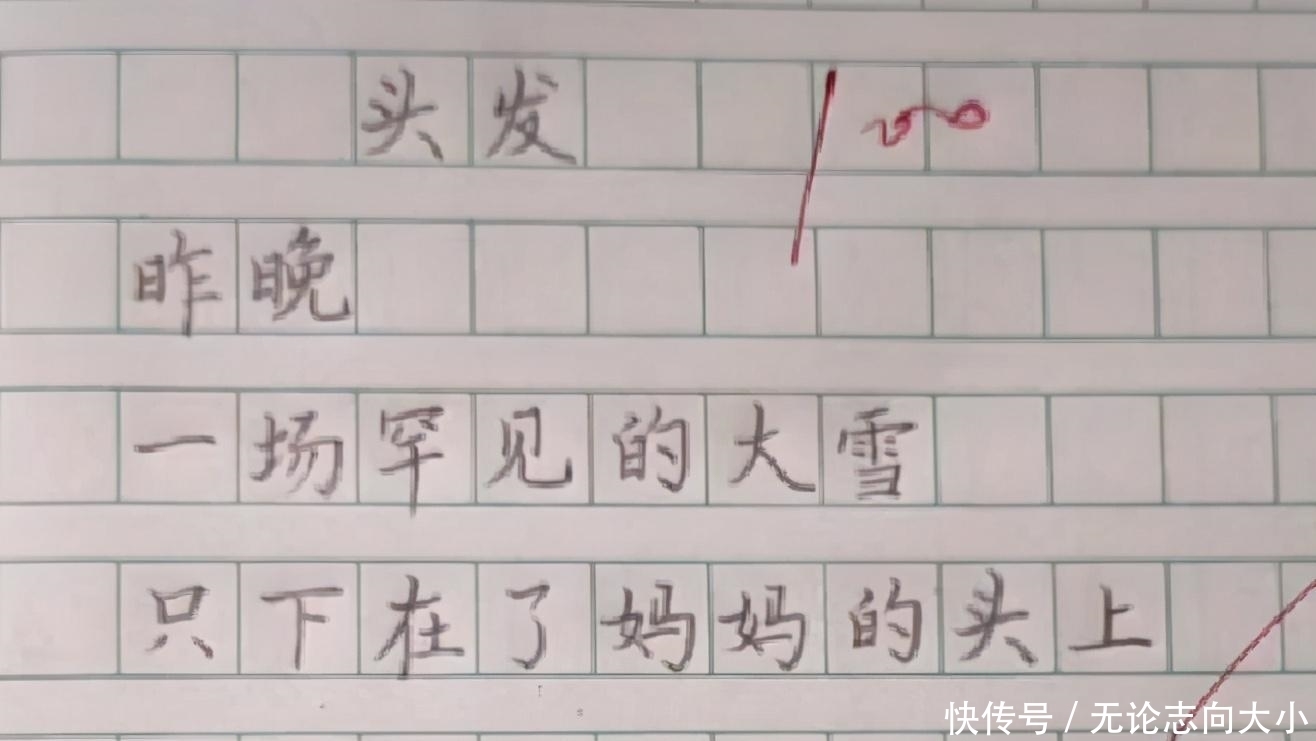 头发
100
昨晚
一场罕见的大雪
只下在了妈妈的头上
快传号/无论志向大小